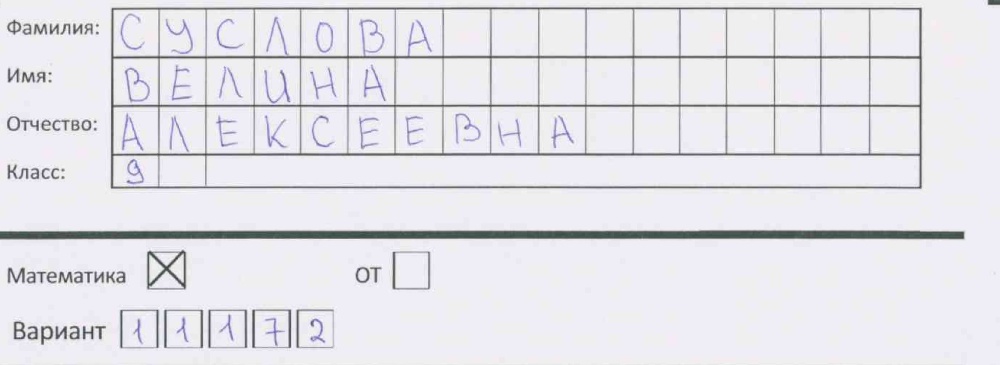 Фамилия: СУСЛОВА
Имя: ВЕЛИНА
Отчество: АЛЕКСЕЕВНА
Класс: 9
Математика ☒ ОТ ☐
Вариант 11172